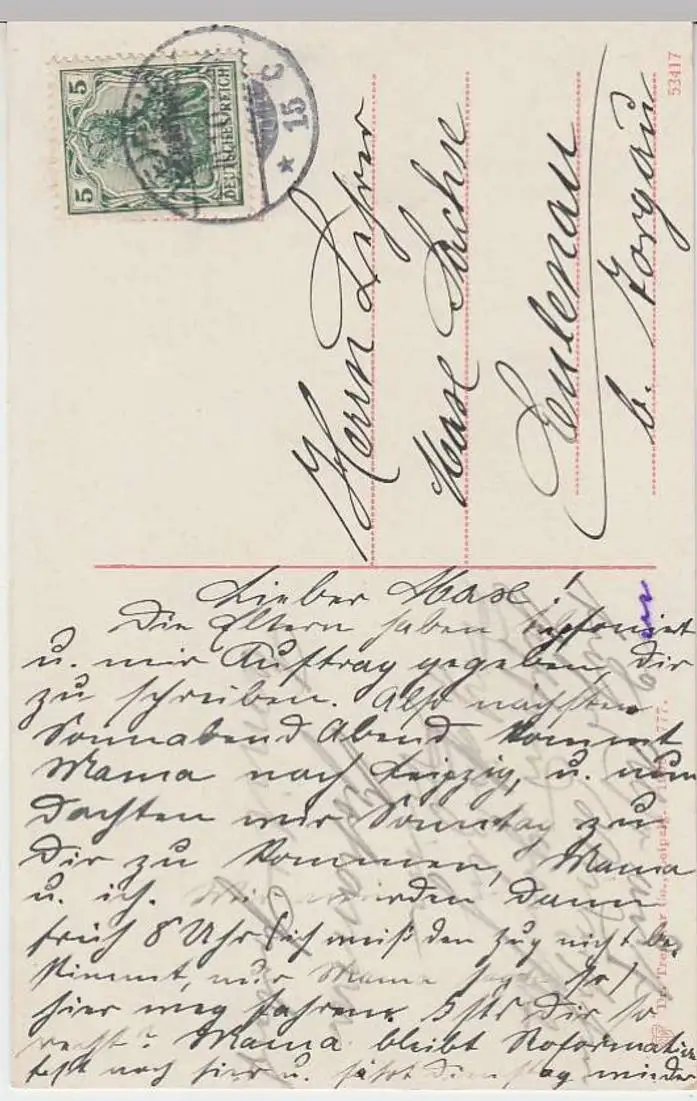 5 5
DEUTSCHES REICH
* 15 C
53417
Herrn Lehrer
Max Sachse
Eulenau
b. Torgau
Lieber Max!
Die Eltern haben telefoniert
u. mir Auftrag gegeben, Dir
zu schreiben. Also nächsten
Sonnabend Abend kommt
Mama nach Leipzig, u. nun
dachten wir Sonntag zu
Dir zu kommen, Mama
u. ich. Wir würden dann
früh 8 Uhr (ich weiß den Zug nicht be-
stimmt, nur Mama sagte so)
hier weg fahren. Ists Dir so
recht? Mama bleibt Reformations
fest noch hier u. fährt Dienstag wieder
Dr. Trenkler Co., Leipzig.